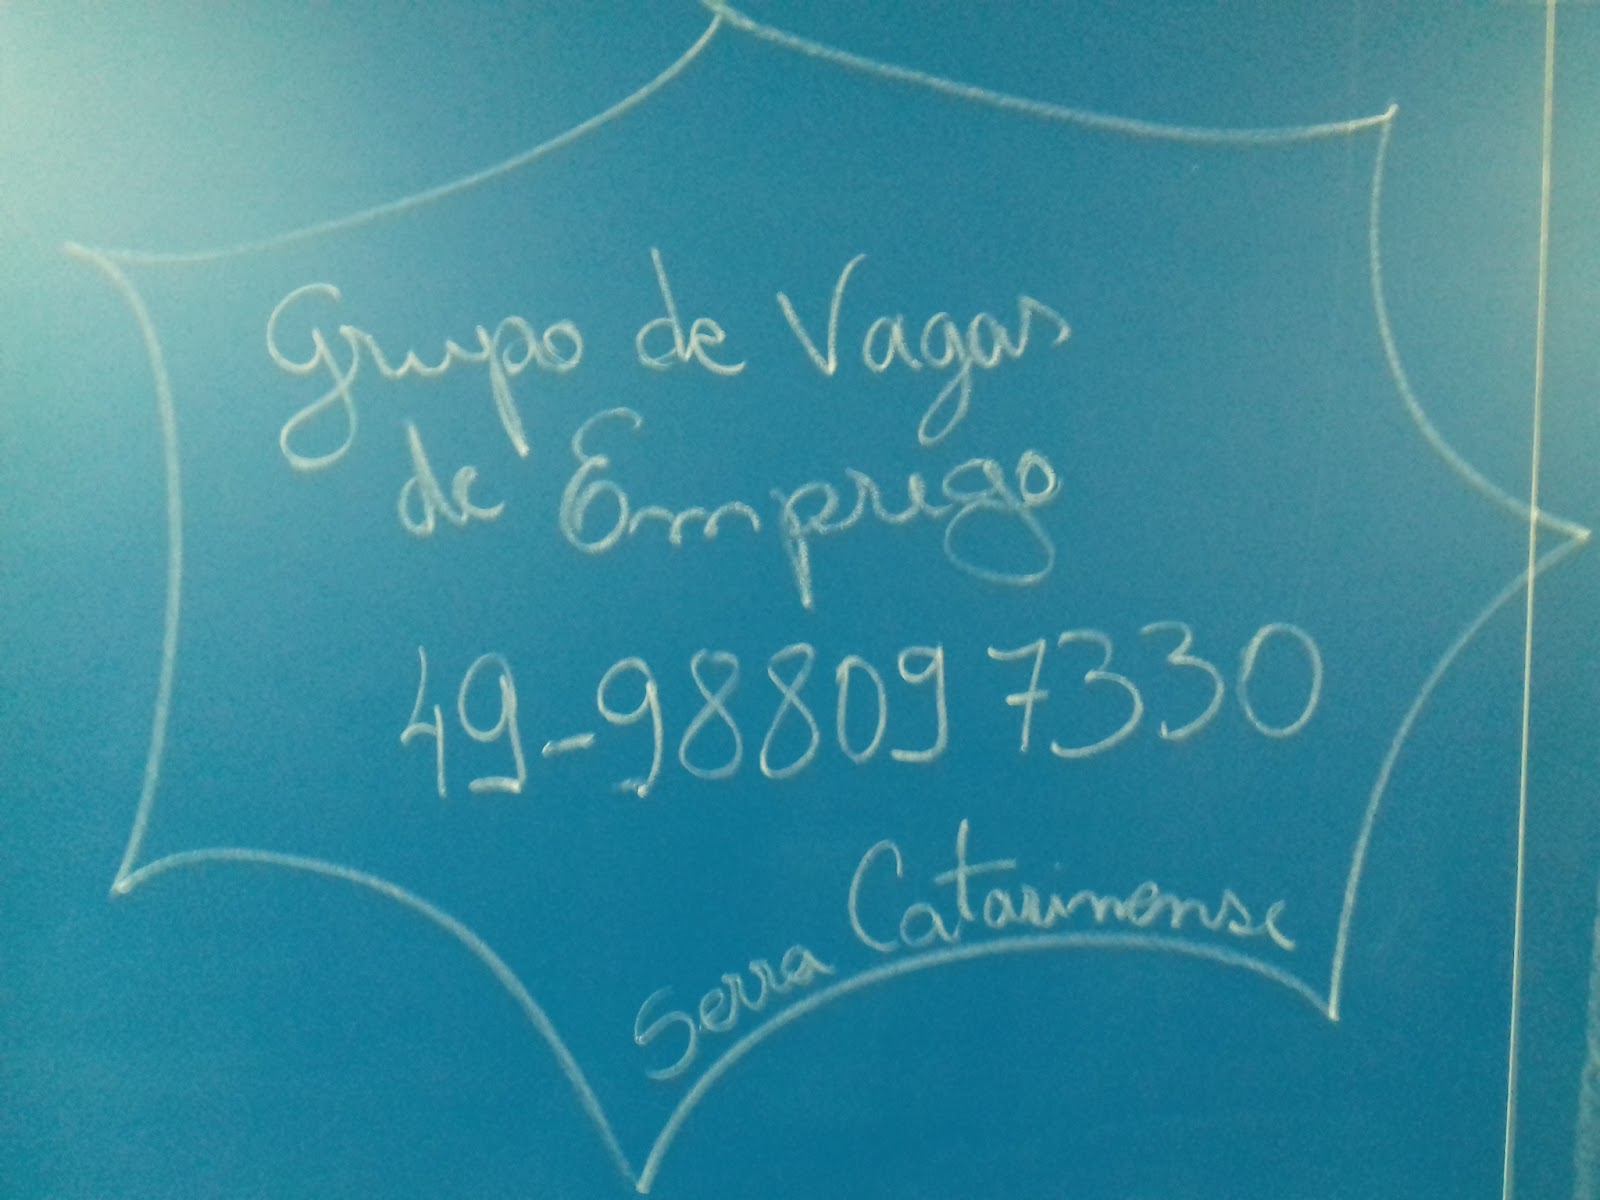 Grupo de Vagas
de Emprego
49-98809 7330
Serra Catarinense